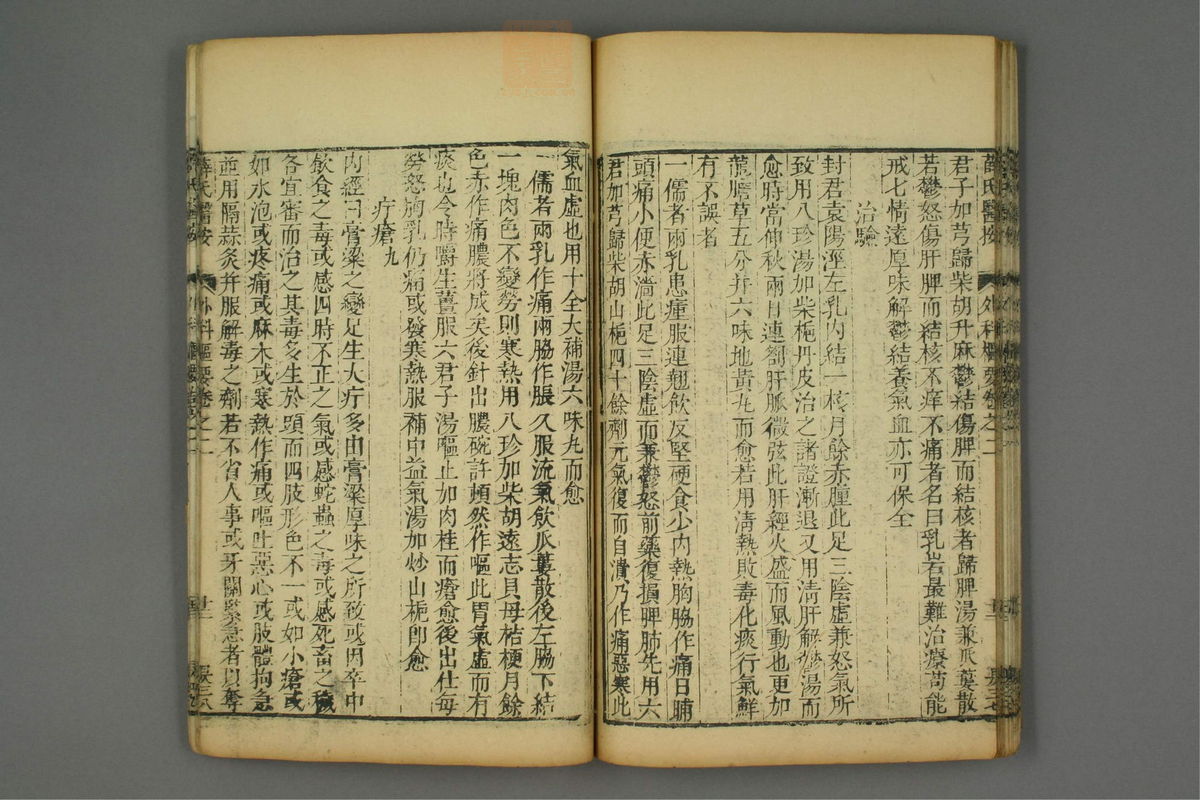 薛氏醫按 外科樞要卷之二
君子如芎歸柴胡升麻鬱結傷脾而結核者歸脾湯兼瓜蔞散
若鬱怒傷肝脾而結核不痒不痛者名曰乳岩最難治療苟能
戒七情遠厚味解鬱結養氣血亦可保全
治驗
封君袁陽涇左乳內結一核月餘赤腫此足三陰虛兼怒氣所
致用八珍湯加柴梔丹皮治之諸證漸退又用清肝解鬱湯而
愈時當仲秋兩目連劄肝脈微弦此肝經火盛而風動也更加
龍膽草五分并六味地黃丸而愈若用清熱敗毒化痰行氣鮮
有不誤者
一儒者兩乳患腫服連翹飲反堅硬食少內熱胸脇作痛日晡
頭痛小便赤澁此足三陰虛而兼鬱怒前藥復損脾肺先用六
君加芎歸柴胡山梔四十餘劑元氣復而自潰乃作痛惡寒此
氣血虛也用十全大補湯六味丸而愈
一儒者兩乳作痛兩脇作脹久服流氣飲瓜蔞散後左脇下結
一塊肉色不變勞則寒熱用八珍加柴胡遠志貝母桔梗月餘
色赤作痛膿將成矣後針出膿碗許頓然作嘔此胃氣虛而有
痰也令時嚼生薑服六君子湯嘔止加肉桂而瘡愈後出仕每
勞怒胸乳仍痛或發寒熱服補中益氣湯加炒山梔即愈
疔瘡九
內經曰膏粱之變足生大疔多由膏粱厚味之所致或因卒中
飲食之毒或感四時不正之氣或感蛇蟲之毒或感死畜之穢
各宜審而治之其毒多生於頭而四肢形色不一或如小瘡或
如水泡或疼痛或麻木或寒熱作痛或嘔吐惡心或肢體拘急
並用隔蒜灸并服解毒之劑若不省人事或牙關緊急者以奪
薛氏醫按 外科樞要卷之二